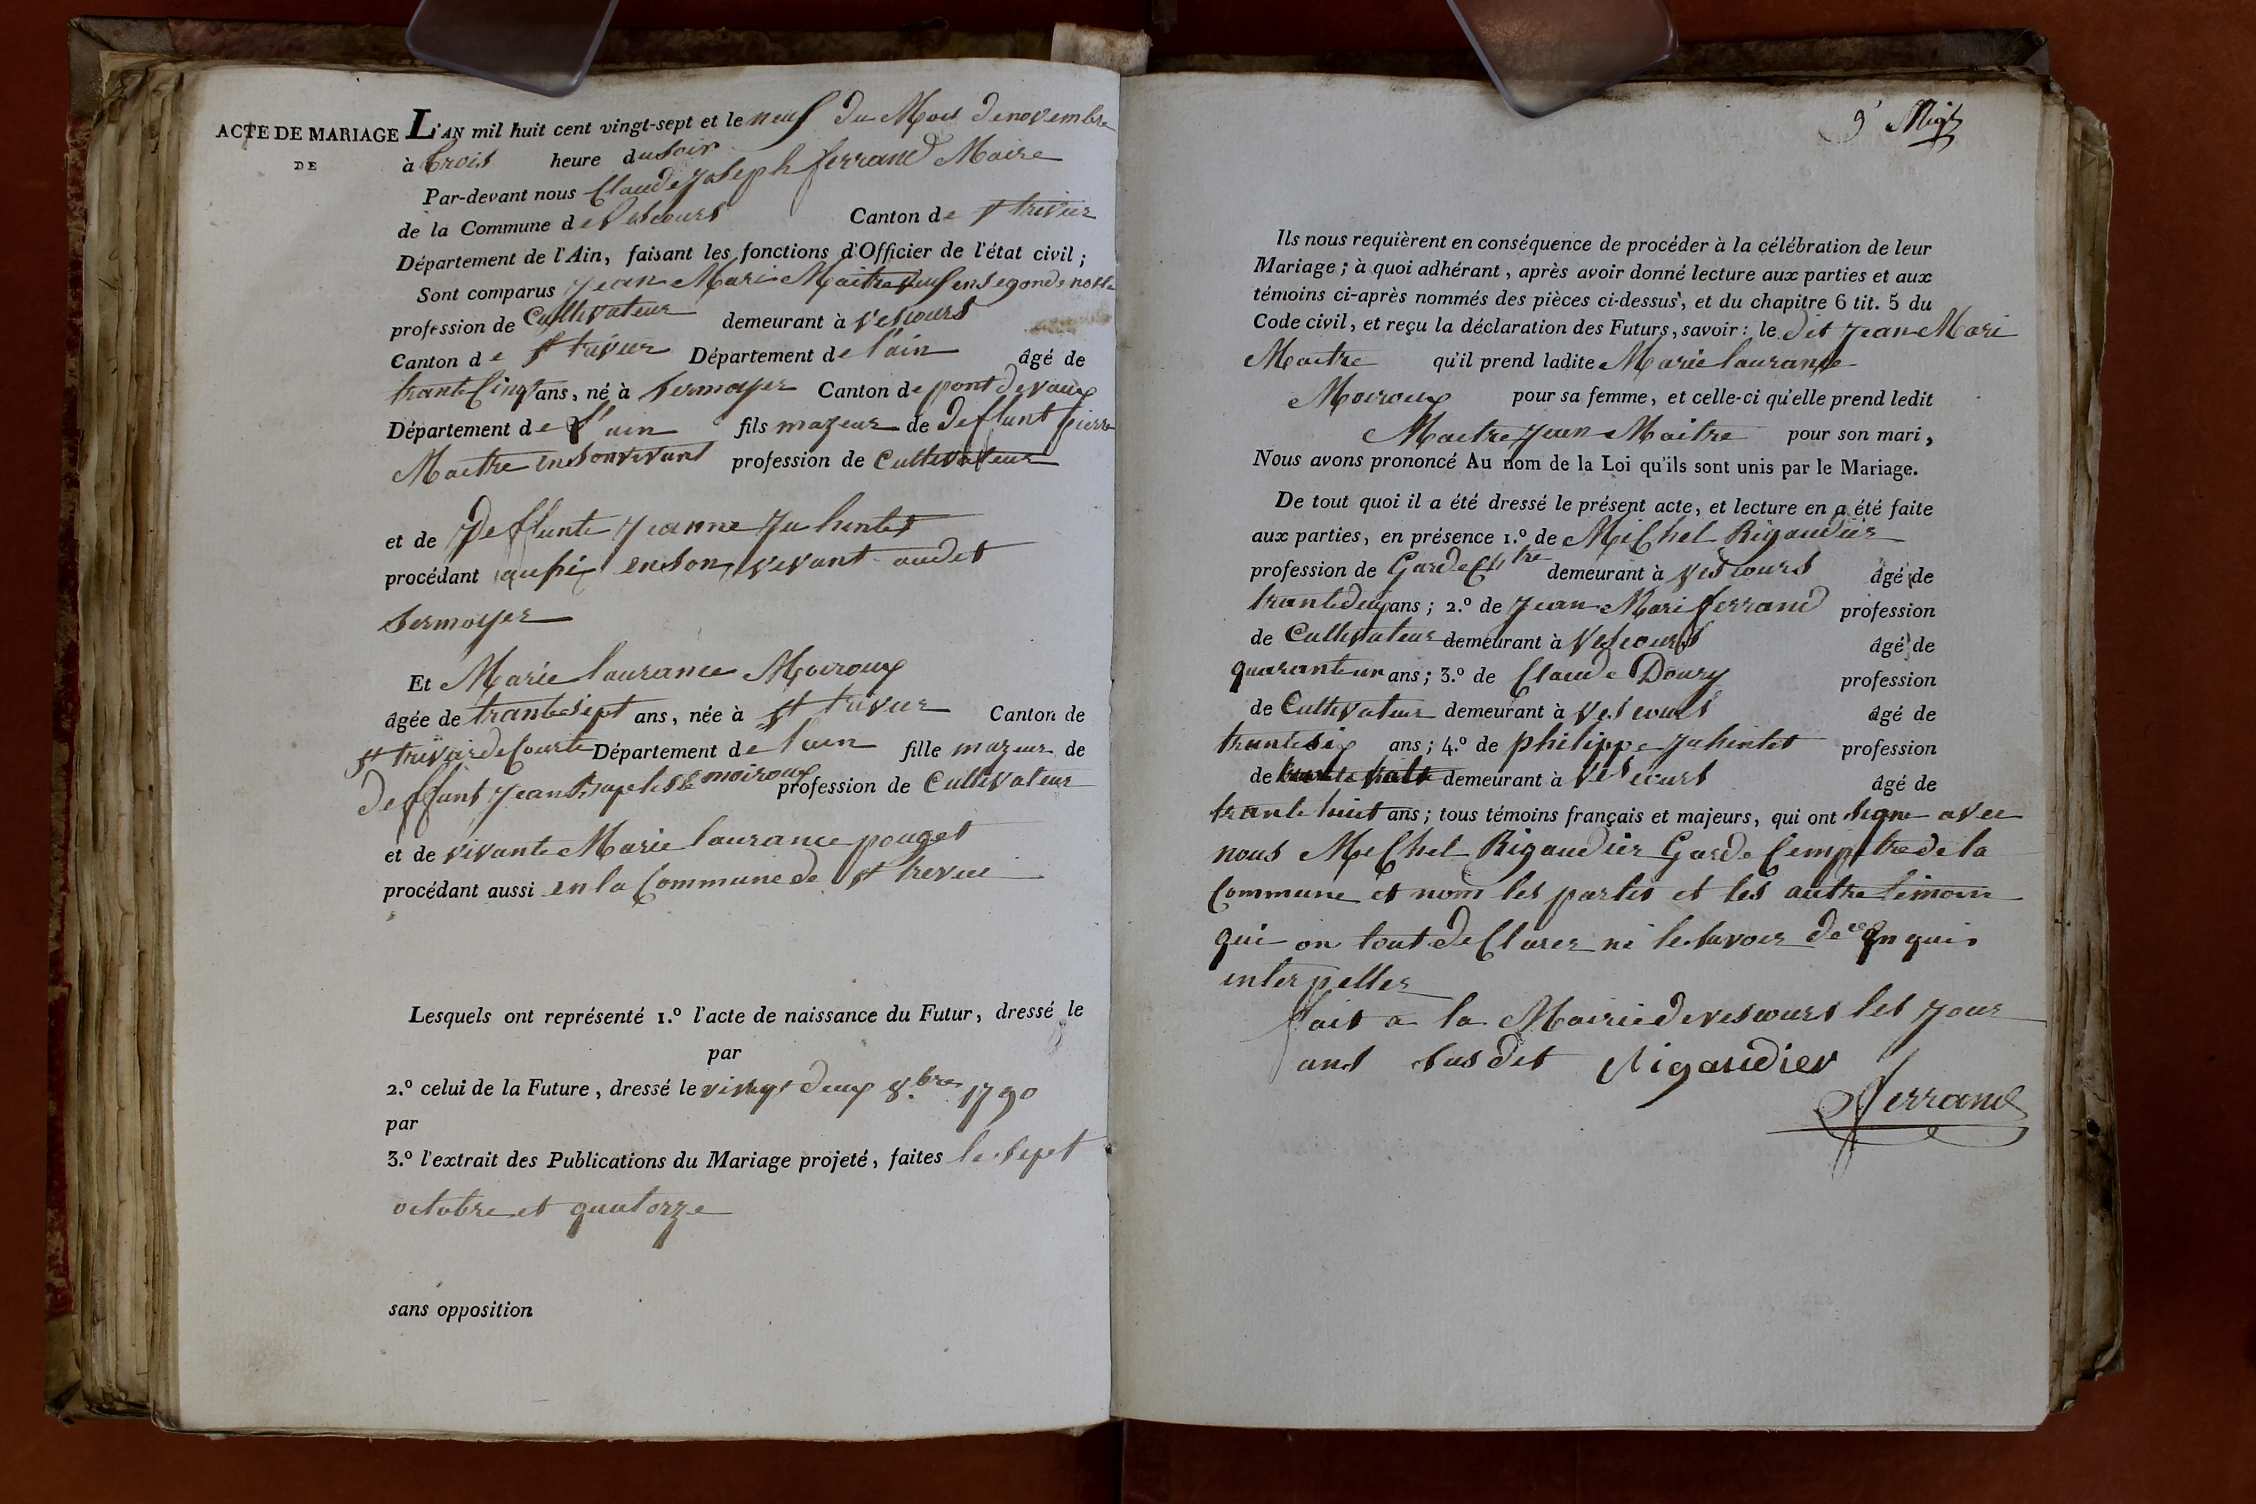 ACTE DE MARIAGE
DE
L'AN mil huit cent vingt-sept et le neuf du Mois denovembre
à trois heure du soir
Par-devant nous Claude Joseph ferrand Maire
de la Commune de Vescours Canton de st trivier
Département de l'Ain, faisant les fonctions d'Officier de l'état civil ;
Sont comparus Jean Mari Maitre veuf en segonde nosse
profession de Cultivateur demeurant à vescours
Canton de st trivier Département de l'ain âgé de
trante Cinq ans, né à Sermoyer Canton de pont de vaux
Département de l'ain fils mageur de deffunt pierre
Maitre ensonvivant profession de Cultivateur
et de Deffunte Jeanne Juhentet
procédant en son vivant audit
Sermoyer
Et Marie laurance Moiroux
âgée de trante sept ans, née à st trivier Canton de
st trivier de Courte Département de l'ain fille mageur de
deffunt Jean Baptiste moiroux profession de Cultivateur
et de vivante Marie laurance pouget
procédant aussi en la Commune de st trevier
Lesquels ont représenté 1.º l'acte de naissance du Futur, dressé le
par
2.º celui de la Future, dressé le vingt deux 8.bre 1790
par
3.º l'extrait des Publications du Mariage projeté, faites le sept
octobre et quatorze
sans opposition
Ils nous requièrent en conséquence de procéder à la célébration de leur
Mariage ; à quoi adhérant, après avoir donné lecture aux parties et aux
témoins ci-après nommés des pièces ci-dessus, et du chapitre 6 tit. 5 du
Code civil, et reçu la déclaration des Futurs, savoir : le dit Jean Mari
Maitre qu'il prend ladite Marie laurance
Moiroux pour sa femme, et celle-ci qu'elle prend ledit
Maitre Jean Maitre pour son mari,
Nous avons prononcé Au nom de la Loi qu'ils sont unis par le Mariage.
De tout quoi il a été dressé le présent acte, et lecture en a été faite
aux parties, en présence 1.º de Michel Rigaudier
profession de Garde demeurant à vescours âgé de
trante deux ans ; 2.º de Jean Mari ferrand profession
de Cultivateur demeurant à Vescours âgé de
quarante un ans ; 3.º de Claude Doury profession
de Cultivateur demeurant à vescours âgé de
trante six ans ; 4.º de philippe Juhentet profession
de demeurant à vescours âgé de
trante huit ans ; tous témoins français et majeurs, qui ont signe avec
nous Michel Rigaudier Garde Cempetre de la
Commune et nom les partis et les autre temoin
qui on tout declarer ni le savoir de ce
interpeller
fait a la Mairie de vescours les Jour
ans susdit Rigaudier
ferrand